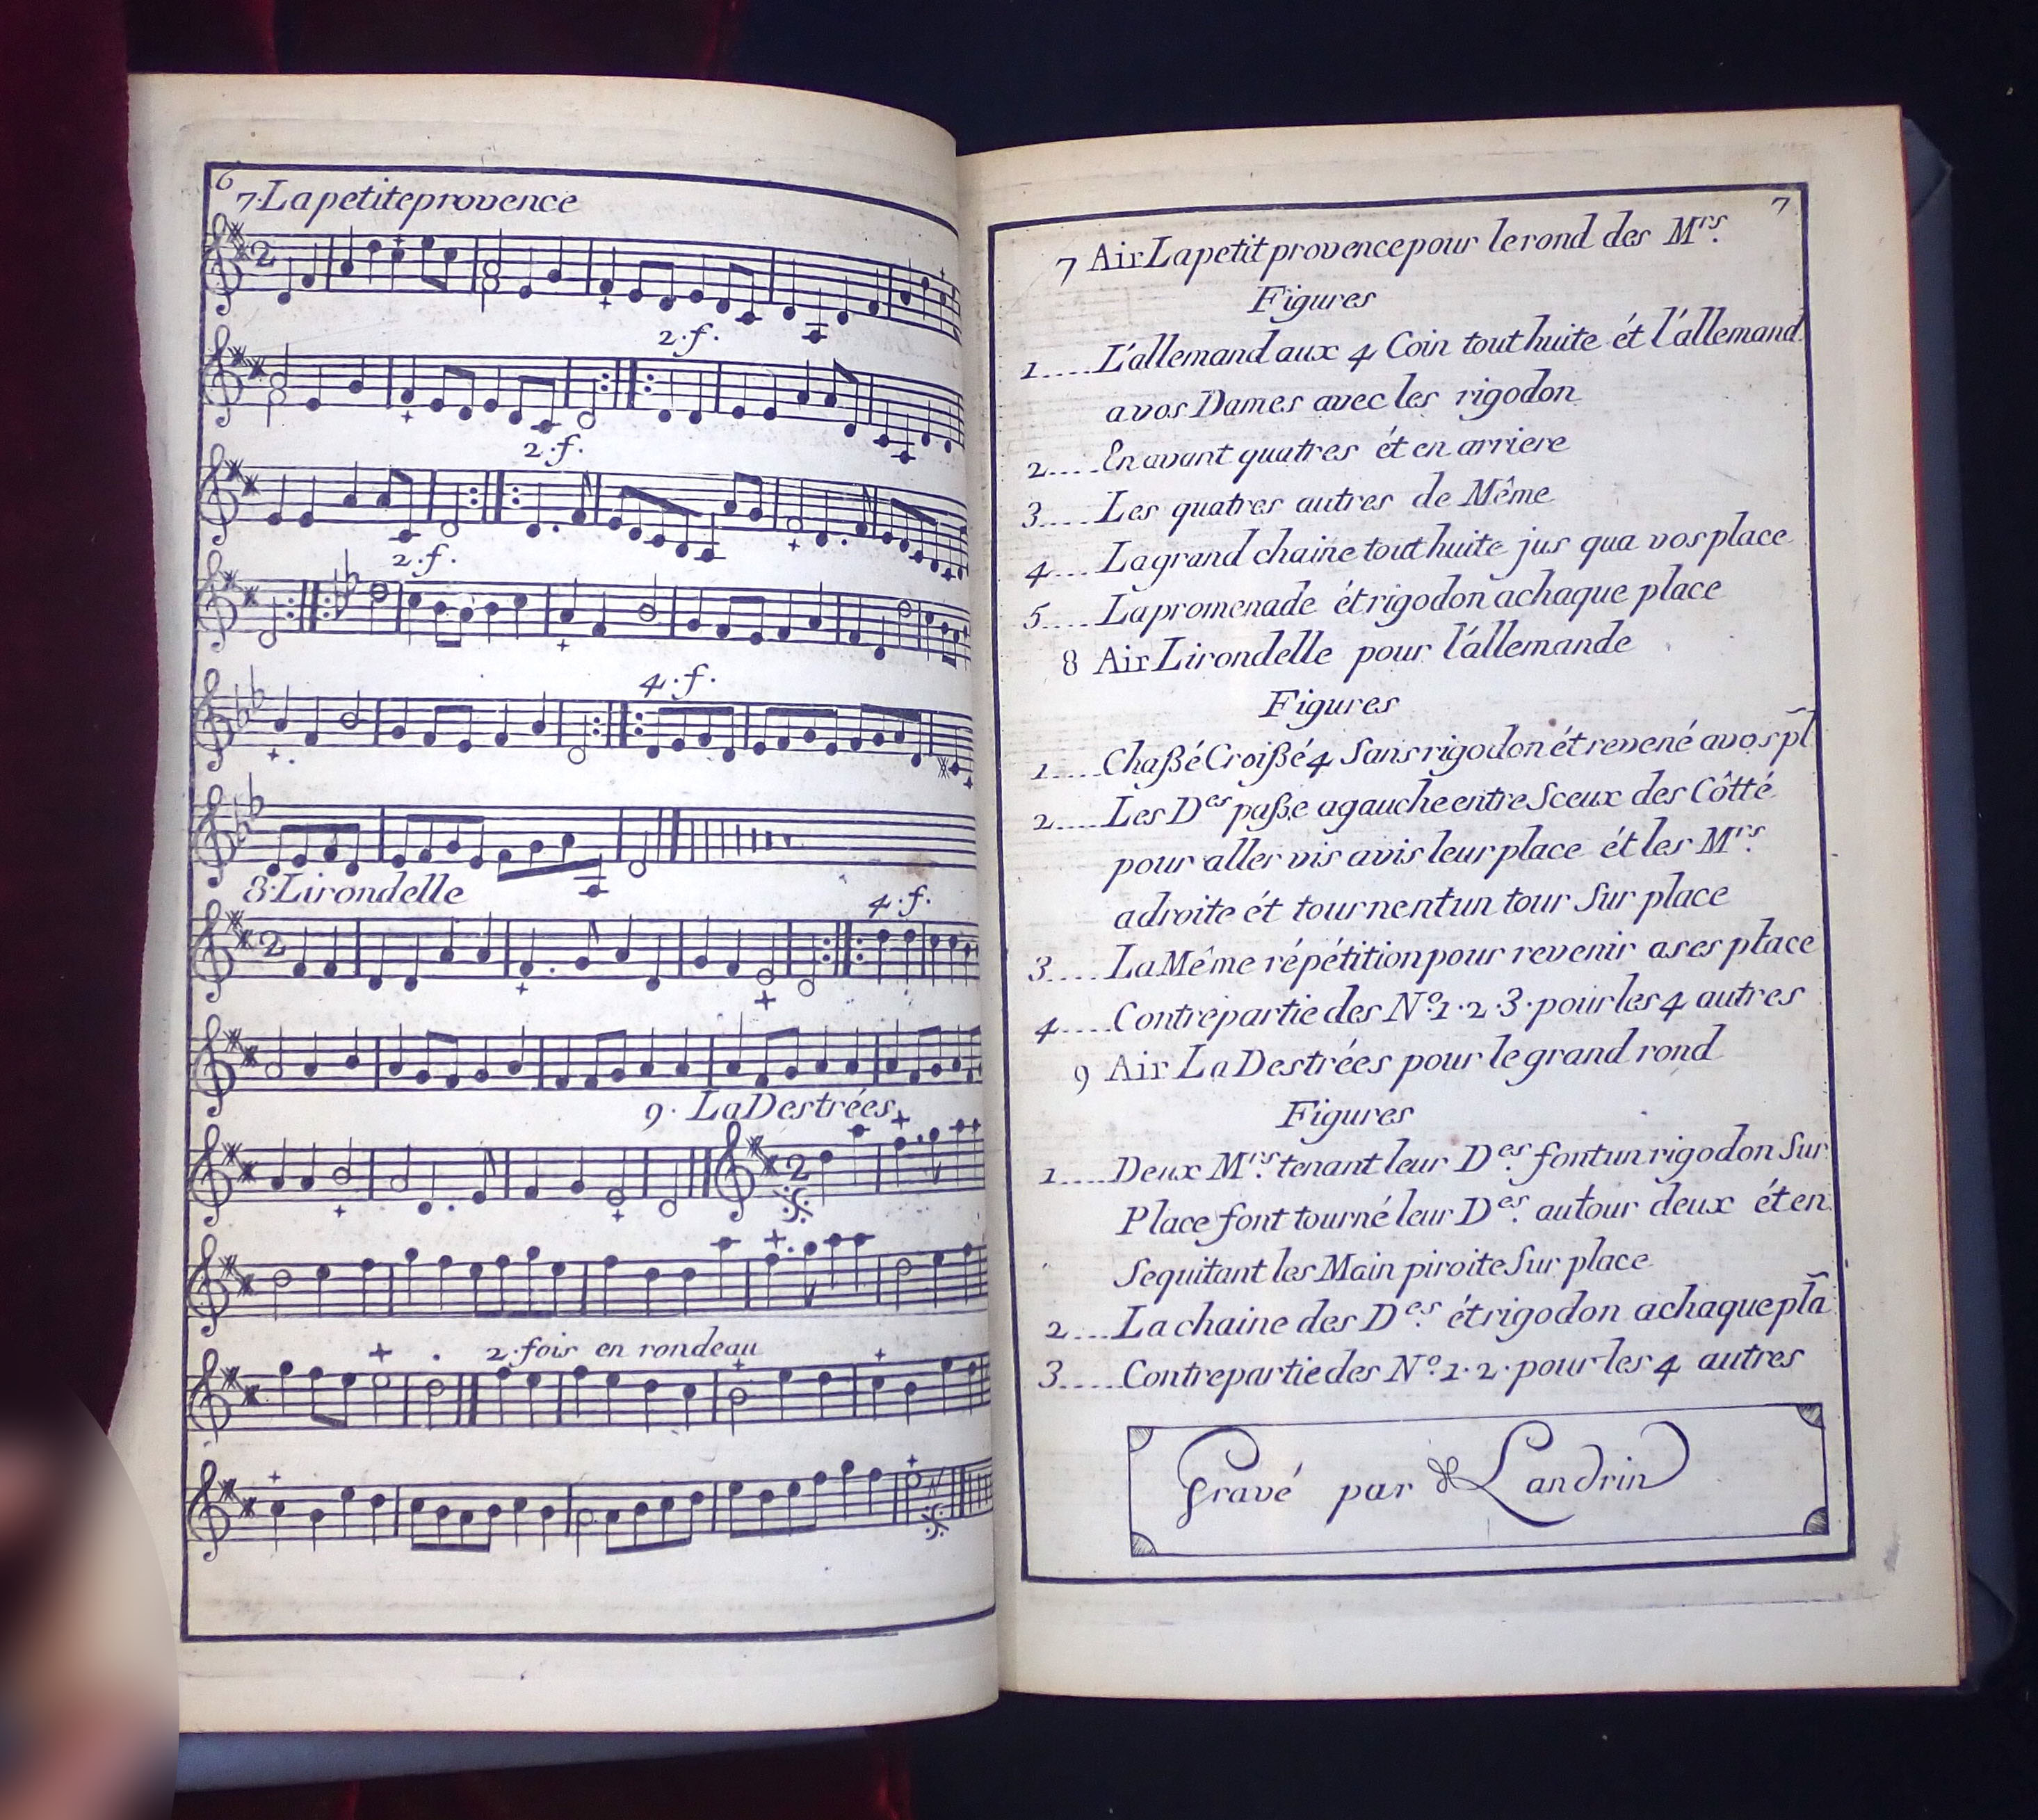 6
7. La petite provence
2
2. f.
2. f.
2. f.
4. f.
8. Lirondelle
4. f.
2
9. La Destrées
2
2. fois en rondeau
7
7 Air La petit provence pour le rond des Mrs.
Figures
1.... L'allemand aux 4 Coin tout huite ét l'allemand
a vos Dames avec les rigodon
2.... En avant quatres ét en arriere
3.... Les quatres autres de Même
4.... La grand chaine tout huite jus qua vos place
5.... La promenade ét rigodon a chaque place
8 Air Lirondelle pour l'allemande
Figures
1.... Chaßé Croißé 4 Sans rigodon ét revené a vos pl
2.... Les Des paße a gauche entre Sceux des Côtté
pour aller vis avis leur place ét les Mrs.
a droite ét tournent un tour Sur place
3.... La Même répétition pour revenir a ses place
4.... Contrepartie des No. 1. 2. 3. pour les 4 autres
9 Air La Destrées pour le grand rond
Figures
1.... Deux Mrs. tenant leur Des. font un rigodon Sur
Place font tourné leur Des. autour deux ét en
Sequitant les Main piroite Sur place
2.... La chaine des Des. ét rigodon a chaque pla
3.... Contrepartie des No. 1. 2. pour les 4 autres
Gravé par Landrin